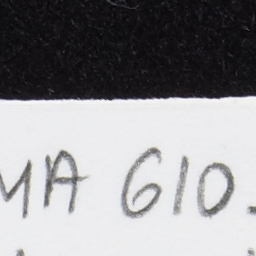 MA 610.